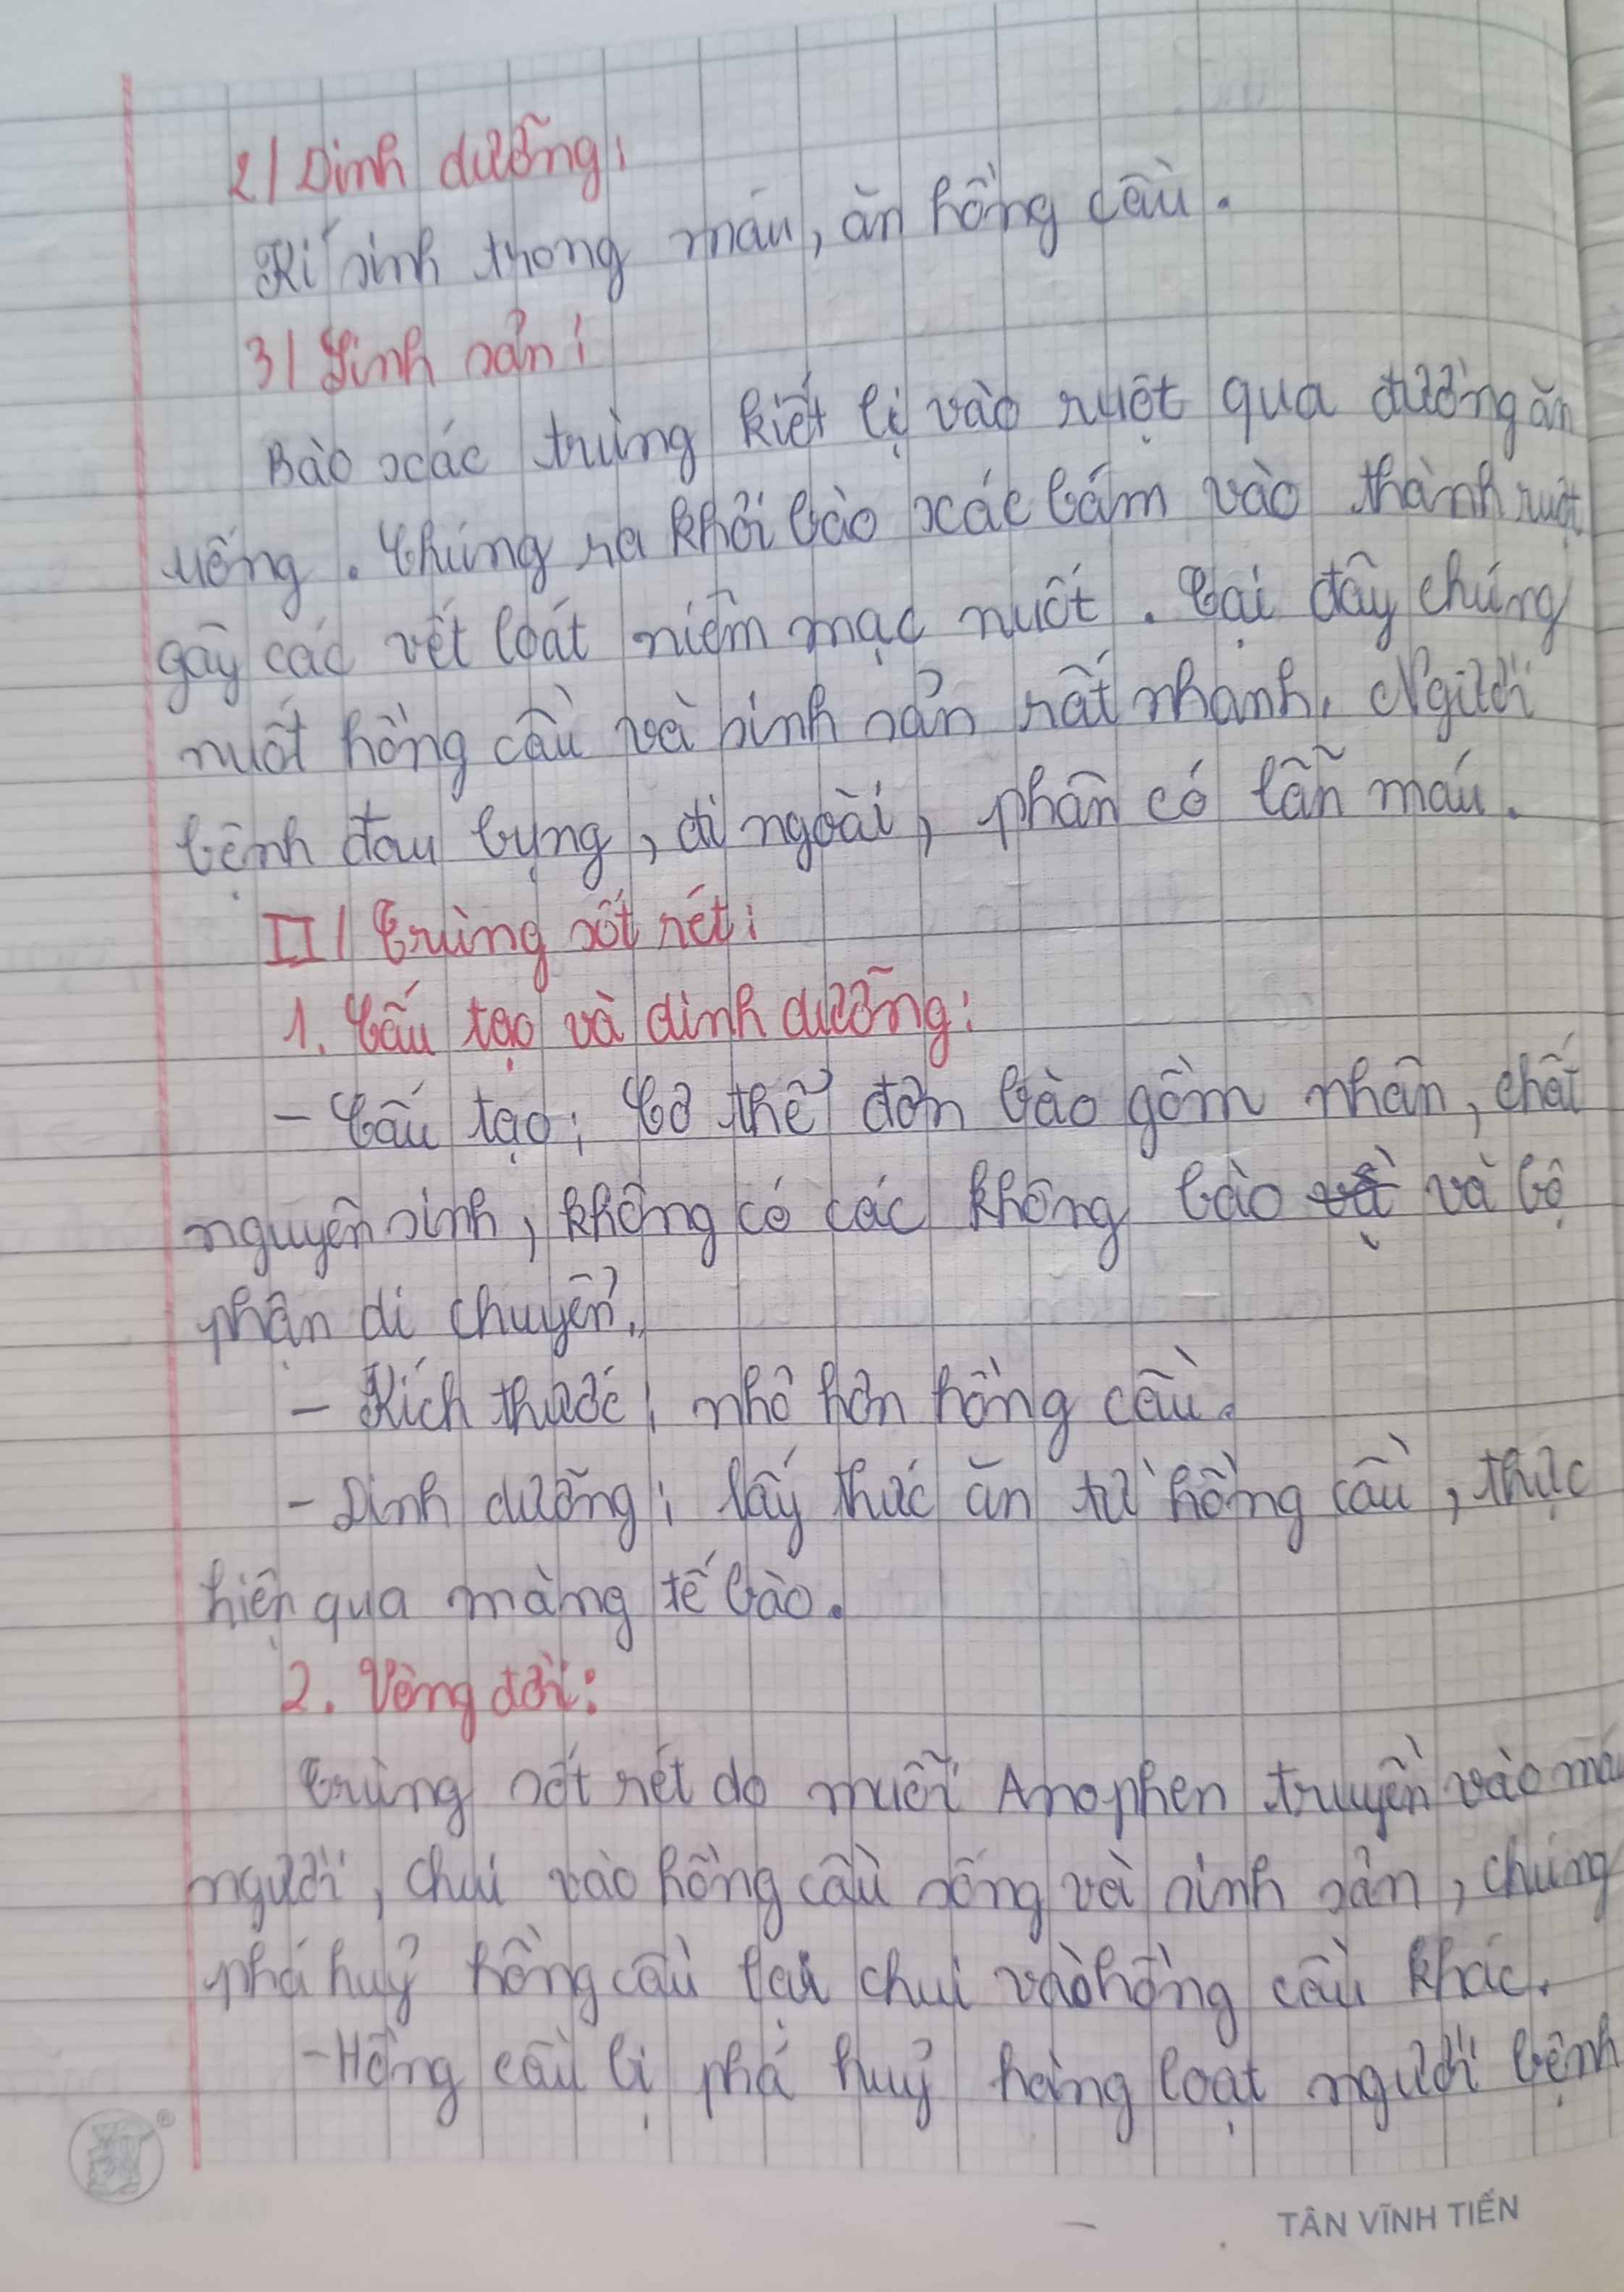 2/ Dinh dưỡng:
Kí sinh trong máu, ăn hồng cầu.
3/ Sinh sản:
Bào xác trùng kiết lị vào ruột qua đường ăn
uống. Chúng ra khỏi bào xác bám vào thành ruột
gây các vết loát niêm mạc nuốt. Tại đây chúng
nuốt hồng cầu và sinh sản rất nhanh. Người
bệnh đau bụng, đi ngoài, phân có lẫn máu.
II/ Trùng sốt rét:
1. Cấu tạo và dinh dưỡng:
- Cấu tạo: Cơ thể đơn bào gồm nhân, chất
nguyên sinh, không có các không bào và bộ
phận di chuyển.
- Kích thước: nhỏ hơn hồng cầu.
- Dinh dưỡng: lấy thức ăn từ hồng cầu, thực
hiện qua màng tế bào.
2. Vòng đời:
Trùng sốt rét do muỗi Anophen truyền vào
người, chui vào hồng cầu sống và sinh sản, chúng
phá huỷ hồng cầu lại chui vào hồng cầu khác.
- Hồng cầu bị phá huỷ hàng loạt người bệnh
TÂN VĨNH TIẾN